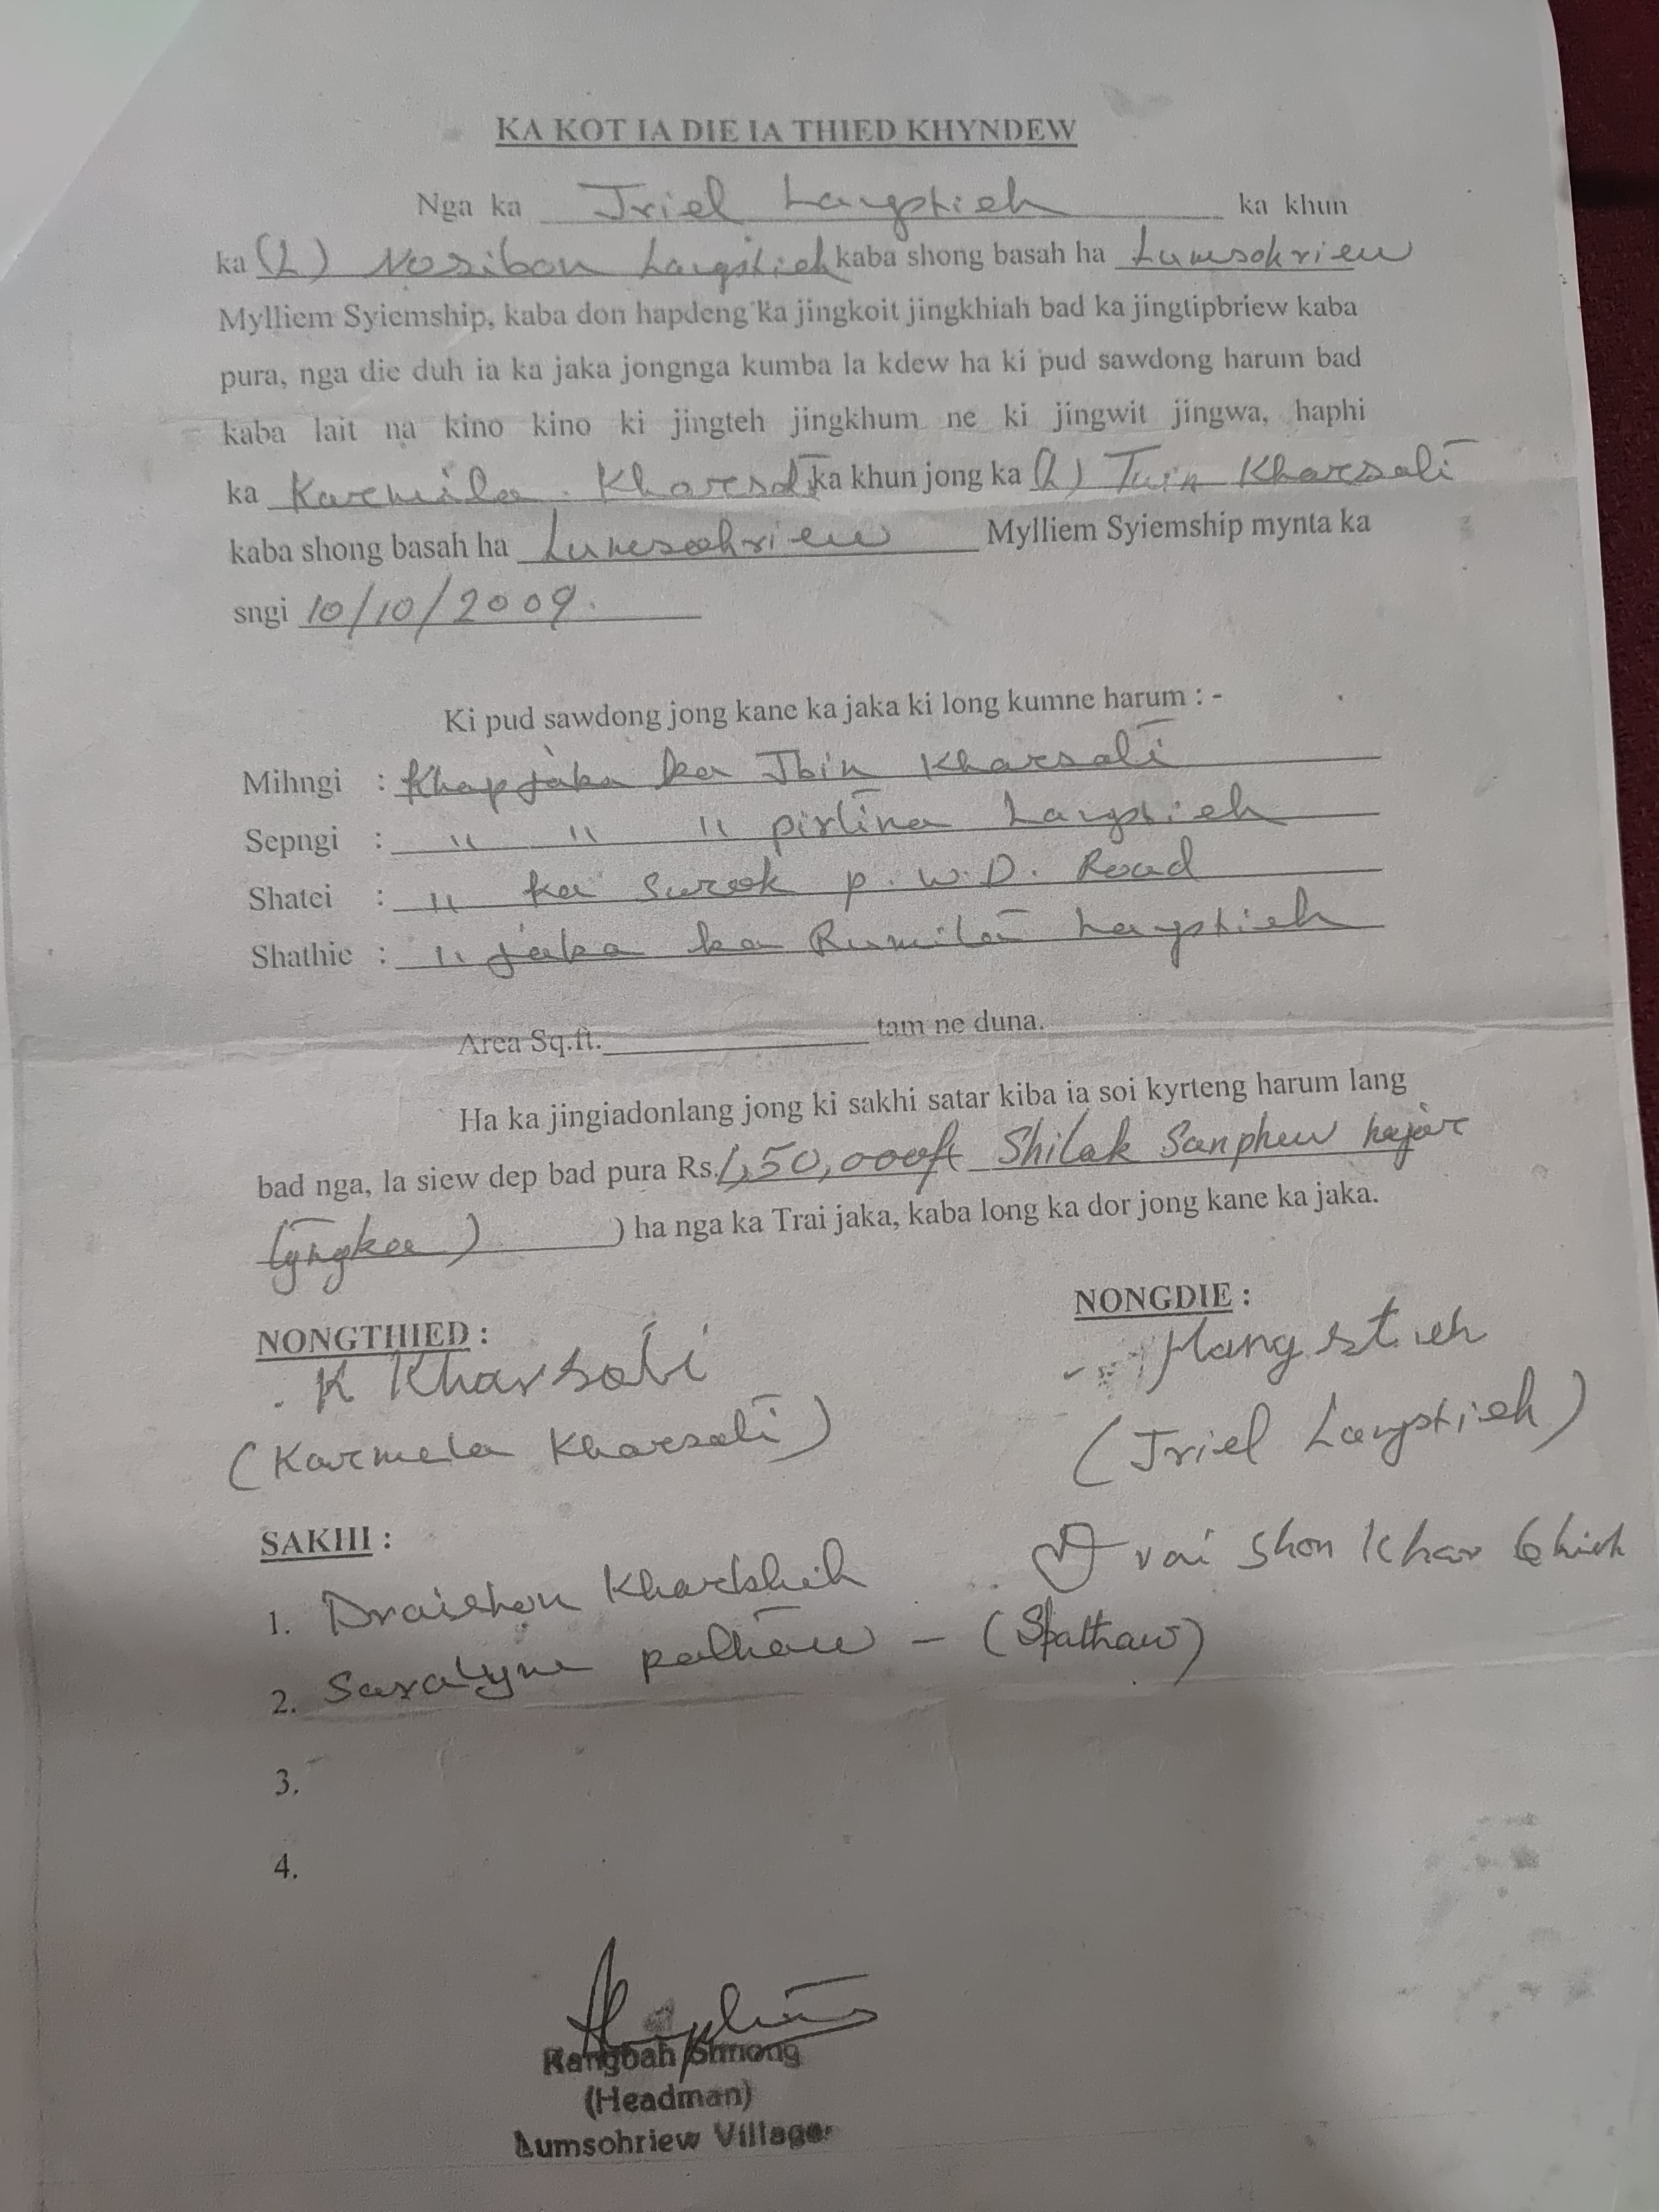 KA KOT IA DIE IA THIED KHYNDEW
Nga ka Jriel Langstieh ka khun
ka (L) Nosibon Langstieh kaba shong basah ha Lumsohriew
Mylliem Syiemship, kaba don hapdeng ka jingkoit jingkhiah bad ka jingtipbriew kaba
pura, nga die duh ia ka jaka jongnga kumba la kdew ha ki pud sawdong harum bad
kaba lait na kino kino ki jingteh jingkhum ne ki jingwit jingwa, haphi
ka Karmila Kharsati ka khun jong ka (L) Kharsati
kaba shong basah ha Lumsohriew Mylliem Syiemship mynta ka
sngi 10/10/2009.
Ki pud sawdong jong kane ka jaka ki long kumne harum : -
Mihngi : Khap jaka ka Kharsati
Sepngi : " " " pirtina Langstieh
Shatei : " ka surok P.W.D. Road
Shathie : " jaka ka Rumita Langstieh
Area Sq.ft. tam ne duna.
Ha ka jingiadonlang jong ki sakhi satar kiba ia soi kyrteng harum lang
bad nga, la siew dep bad pura Rs. 1,50,000/- Shilak Sanphew hajar
tyngka ) ) ha nga ka Trai jaka, kaba long ka dor jong kane ka jaka.
NONGTHIED : NONGDIE :
K Kharsati Jlangstieh
(Karmela Kharsati) (Jriel Langstieh)
SAKHI :
1. Draishon Kharkhih Draishon
2. Saralyne pathaw - (Spathaw)
3.
4.
Rangbah Shnong
(Headman)
Lumsohriew Village